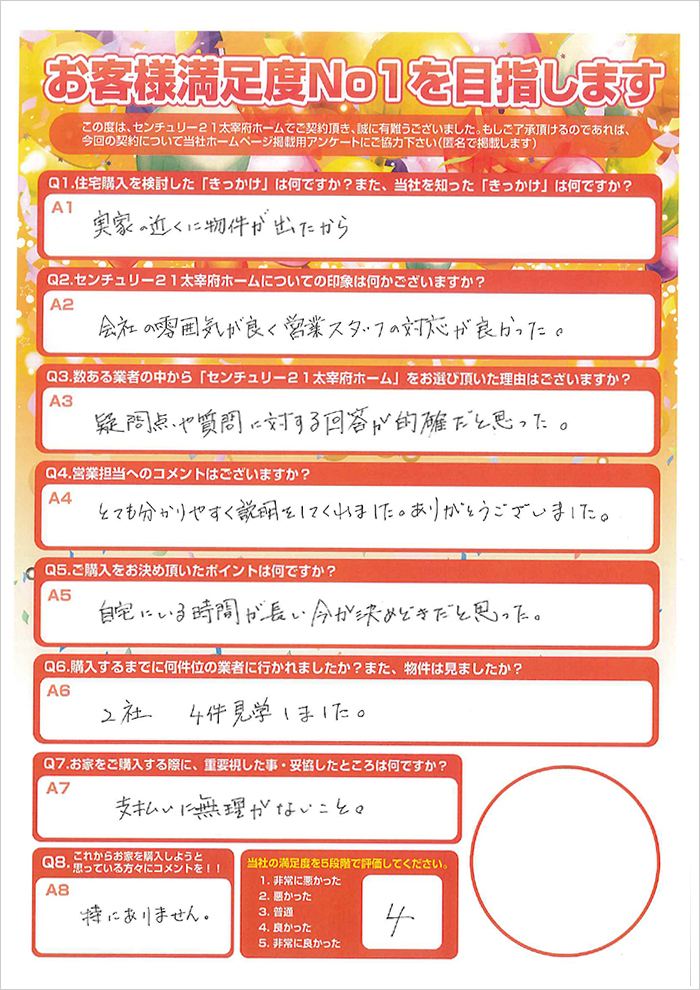 お客様満足度No1を目指します
この度は、センチュリー２１太宰府ホームでご契約頂き、誠に有難うございました。もしご了承頂けるのであれば、
今回の契約について当社ホームページ掲載用アンケートにご協力下さい（匿名で掲載します）
Q1.住宅購入を検討した「きっかけ」は何ですか？また、当社を知った「きっかけ」は何ですか？
A1
実家の近くに物件が出たから
Q2.センチュリー２１太宰府ホームについての印象は何かございますか？
A2
会社の雰囲気が良く営業スタッフの対応が良かった。
Q3.数ある業者の中から「センチュリー２１太宰府ホーム」をお選び頂いた理由はございますか？
A3
疑問点や質問に対する回答が的確だと思った。
Q4.営業担当へのコメントはございますか？
A4
とても分かりやすく説明をしてくれました。ありがとうございました。
Q5.ご購入をお決め頂いたポイントは何ですか？
A5
自宅にいる時間が長い今が決めどきだと思った。
Q6.購入するまでに何件位の業者に行かれましたか？また、物件は見ましたか？
A6
2社 4件見学しました。
Q7.お家をご購入する際に、重要視した事・妥協したところは何ですか？
A7
支払いに無理がないこと。
Q8.これからお家を購入しようと
思っている方々にコメントを！！
A8
特にありません。
当社の満足度を5段階で評価してください。
1. 非常に悪かった
2. 悪かった
3. 普通
4. 良かった
5. 非常に良かった
4